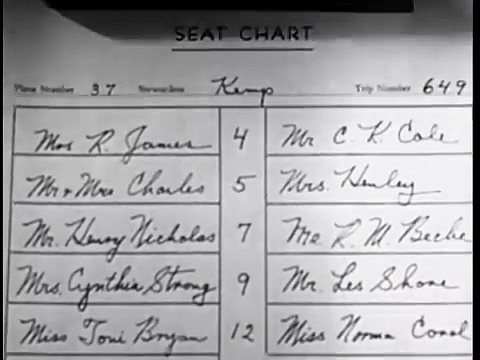 SEAT CHART
Plane Number 37 Stewardess Kemp Trip Number 649
Mrs R. James 4 Mr C. K. Cole
Mr & Mrs Charles 5 Mrs. Henley
Mr. Henry Nicholas 7 Mr R. M. Beebe
Mrs. Cynthia Strong 9 Mr. Les Shone
Miss Toni Bryan 12 Miss Norma Conol